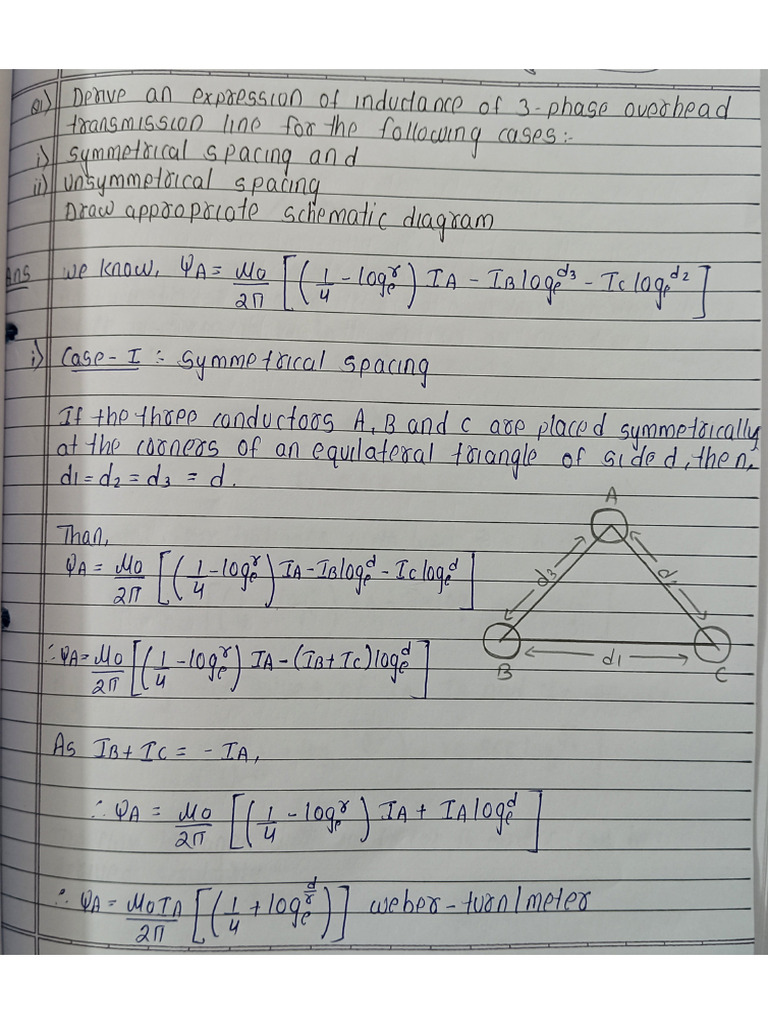 Q1) Derive an expression of inductance of 3-phase overhead
transmission line for the following cases:-
i) symmetrical spacing and
ii) unsymmetrical spacing
Draw appropriate schematic diagram
Ans we know, ψA = μ0/2π [(1/4 - logₑʳ) IA - IB logₑᵈ³ - IC logₑᵈ²]
i) Case-I :- Symmetrical spacing
If the three conductors A, B and C are placed symmetrically
at the corners of an equilateral triangle of side d, then,
d1 = d2 = d3 = d.
A
Than,
ψA = μ0/2π [(1/4 - logₑʳ) IA - IB logₑᵈ - IC logₑᵈ]
d3
∴ ψA = μ0/2π [(1/4 - logₑʳ) IA - (IB + IC) logₑᵈ]
B d1 C
As IB + IC = - IA,
∴ ψA = μ0/2π [(1/4 - logₑʳ) IA + IA logₑᵈ]
∴ ψA = μ0IA/2π [(1/4 + logₑ d/r)] weber-turn/meter